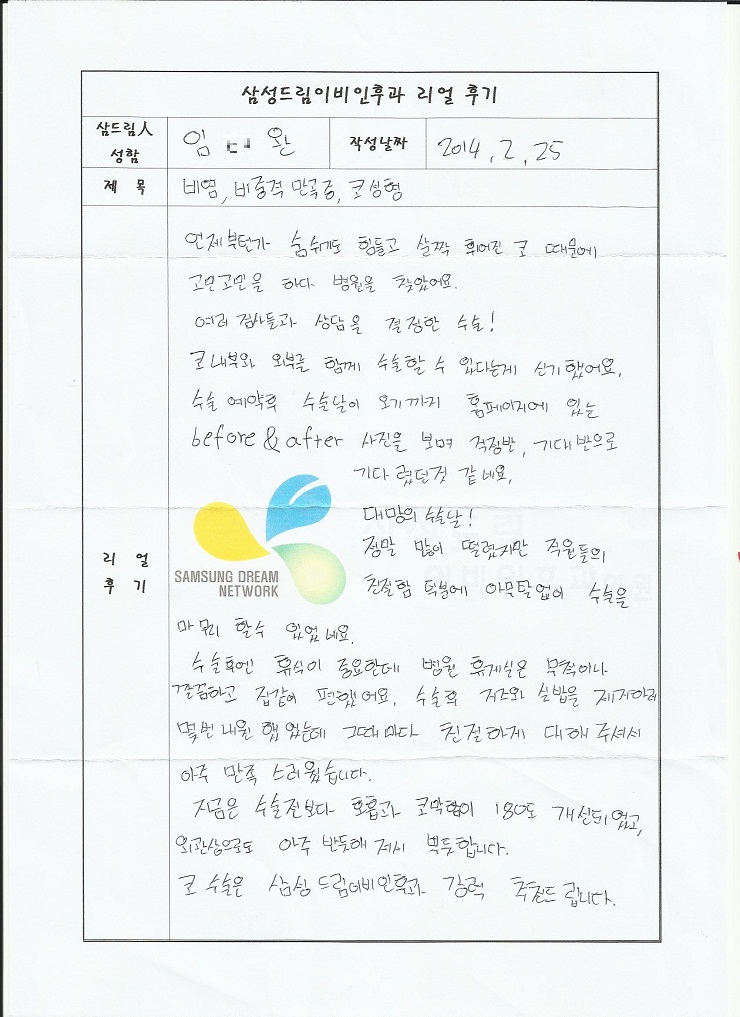 삼성드림이비인후과 리얼 후기
삼드림人 성함
임 완
작성날짜
2014. 2. 25
제 목
비염, 비중격 만곡증, 코성형
리 얼 후 기
언제부턴가 숨쉬기도 힘들고 살짝 휘어진 코 때문에
고민고민을 하다 병원을 찾았어요.
여러 검사들과 상담을 결정한 수술!
코내부와 외부를 함께 수술할 수 있다는게 신기했어요.
수술 예약후 수술날이 오기까지 홈페이지에 있는
before & after 사진을 보며 걱정반, 기대반으로
기다렸던것 같네요.
대망의 수술날!
정말 많이 떨렸지만 직원들의
친절함 덕분에 아무탈없이 수술을
마무리 할수 있었네요.
수술후엔 휴식이 중요한데 병원 휴게실은 무척이나
깔끔하고 집같이 편했어요. 수술후 실밥을 제거하러
몇번 내원 했었는데 그때마다 친절하게 대해 주셔서
아주 만족 스러웠습니다.
지금은 수술전보다 호흡과 코막힘이 180도 개선되었고,
외관상으로도 아주 반듯해 져서 뿌듯합니다.
코 수술은 삼성드림이비인후과 강력 추천드립니다.
SAMSUNG DREAM
NETWORK